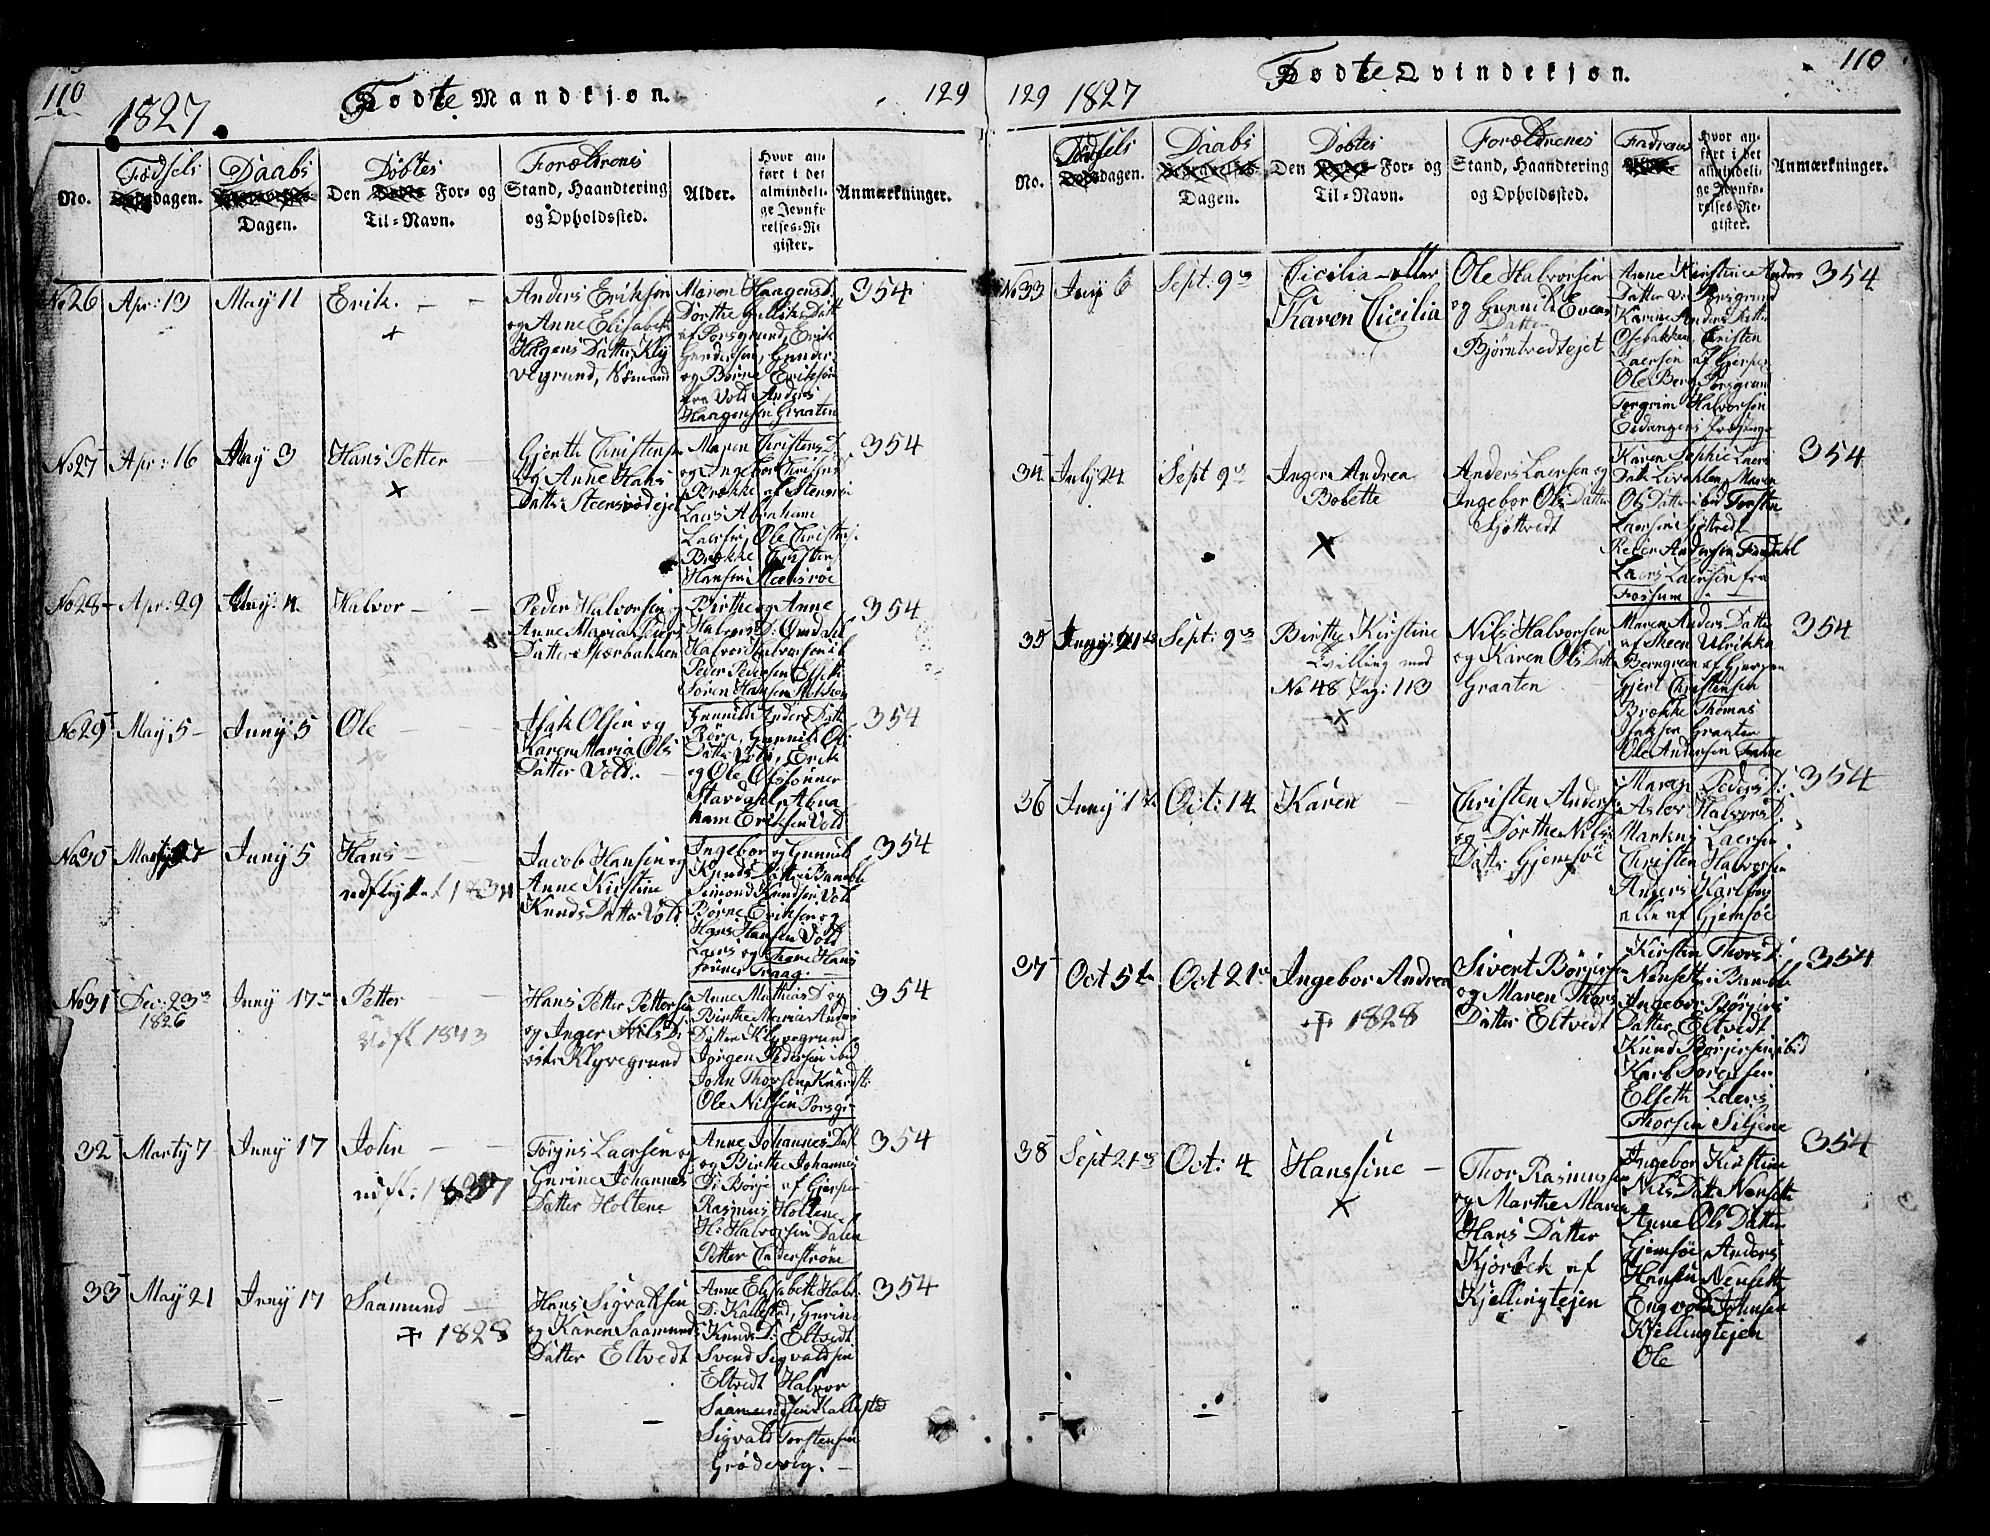 110
1827.
Fødte Mandkjøn.
129
No.
Fødsels
dagen.
Daabs
Dagen.
Den Døbtes For- og
Til-Navn.
Forældrenes
Stand, Haandtering
og Opholdssted.
Alder.
Hvor an-
ført i det
almindeli-
ge Jevnfø
relses-Re
gister.
Anmærkninger.
No 26 Apr: 13 May 11 Erik. - -
+
Anders Eriksen
og Anne Elisabeth
Haagens Datter, Kly
vegrund,
Maren Haagens D.
Dorthe Gulliks Datt
af Porsgrund, Erik
Gundersen, Gunder
og Børne Eriksøn
fra Vold Anders
Haagensen Graaten
354
No 27 Apr: 16 May 3 Hans Petter
x
Gjerth Christensen
og Anne Hans
Datter
Maren Christens D.
og Ingebor Christens
Brække af Stensrøe
Laers Abraham
Laersen, Ole Christens
Brække Christen
Hansen Steensrøe
354
No 28 Apr: 29 Halvor - -
Peder Halvorsen og
Anne Maria Peders
Datter Spærbakken
Birthe og Anne
Halvors D:
Halvor Halvorsen ib
Peder Pedersen
Søren Hansen
354
No 29 May 5 - Juny 5 Ole -
x
Isak Olsen og
Karen Maria Ols
Datter Vold. -
Gunnild Anders Datt
Røra, Gunnild Ols
Datter Vold, Erik
og Ole Olssønner
Stavdahl, Abra
ham Eriksen Vold
354
No 30 Juny 5 Hans -
udflyttet
Jacob Hansen og
Anne Kirstine
Knuds Datter Vold
Ingebor og Gunnil
Knuds Datter Bamble
Simond Knudsen Vold
Børne Eriksen og
Hans Hansen Vold
Laers og Thore Hans
sønner Traag. -
354
No 31 Dec: 23
1826
Juny 17 Petter -
Udfl 1843
Hans Petter Pettersen
og Inger Nils D:
Klyvegrund
Anne Mathias D og
Birthe Maria Anders
Datter Klyvegrund
Jørgen Pedersen ibid
John Thorsen
Ole Nilsen Porsgr
354
32 Marty 7 Juny 17 John - -
udfl:
Torgius Laersen og
Gurine Johannes
Datter Holtene
Anne Johannes Datt
og Birthe Johannes
D: Børje af Gjerpen
Rasmus Holtene
H: Halvorsen Dalen
Petter Cederstrøm
354
33 May 21 Juny 17 Saamund -
+ 1828
Hans Sigvaldsen
og Karen Saamunds
Datter Eltvedt
Anne Elisabeth Halv.
D: Kallestad, Gurine
Knuds D: Eltvedt
Svend Sigvaldsen
Eltvedt Halvor
Saamundsen Kallestad
Sigvald Torstensen
Grødevig. -
354
129
1827
Fødte Qvindekjøn.
110
No.
Fødsels
dagen.
Daabs
Dagen.
Den Døbtes For- og
Til-Navn.
Forældrenes
Stand, Haandtering
og Opholdssted.
Fadrane
Hvor an-
ført i det
almindeli-
ge Jevnfø-
relses-Re-
gister.
Anmærkninger.
No 33 July 6 Sept: 9 Cicilia eller
Karen Cicilia
Ole Halvorsen
og Gunnild Evens
Datter
Bjørntvedtejet
Anne Kirstine Anders
Datter Porsgrund
Karine Anders Datter
Osebakken, Christen
Laersen af Gjerpen
Ole Berg Porsgrun
Torgrim Halvorsøn
Eidangers
354
34 July 24 Sept 9 Inger Andrea
Bobette
x
Anders Laersen og
Ingebor Ols Datter
Sjøttvedt
Karen Sophie Laers
Datt Livahlen, Maren
Ols Datter ibd Torsten
Laersen Sjøtvedt
Peder Andersen
Laers Laersen fra
Fossum
354
35 Sept: 9 Birthe Kirstine
Tvilling med
No 48 Pag: 113
x
Nils Halvorsen
og Karen Ols Datt
Graaten
Maren Anders Datter
af Skeen Ulrikka
Berngren af Gjerpen
Gjert Christensen
Brække Thomas
Isaksen Graaten
Ole Andersen
354
36 Juny 1 Oct: 14 Karen -
Christen Anders
og Dorthe Nils
Datter Gjemsøe
Maren Peders D:
Aslov Halvors D:
Markus Laersen
Christen Halvorsen
Anders Karlsen
alle af Gjemsøe
354
37 Oct 5 Oct 21 Ingebor Andrea
+ 1828
Sivert Børjesen
og Maren Thors
Datter Eltvedt
Kirstin Thors D:
Nensett i Bamble
Ingebor Børjers
Datter Eltvedt
Knud Børjersen ibid
Karb Sørensen
Elseth Laers
Thorsen Siljene
354
38 Sept 21 Oct: 4 Hanssine -
x
Thor Rasmussen
og Marthe Maria
Hans Datter
Kjørbek af
Kjellingtejen
Ingebor Kirstine
Nils Datt Nensett
Anne Ols Datter
Gjemsøe Anders
Hansen Nensett
Engvold Johnsen
Kjellingtejen
Ole
354